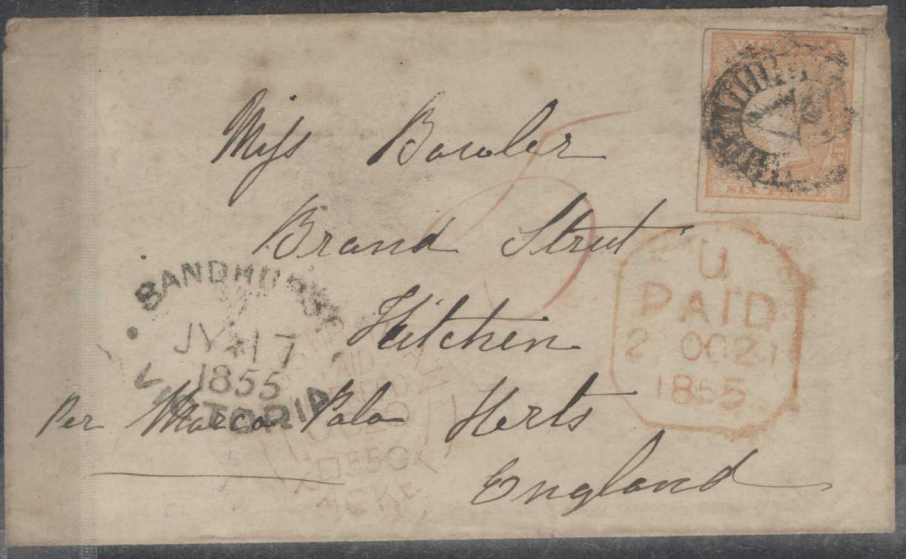 Miss Bowler
Brand Street
Hitchin
Herts
England
Per Marco Polo
SANDHURST
JY 17
1855
VICTORIA
U
PAID
2 OC 21
1855
SIX
5